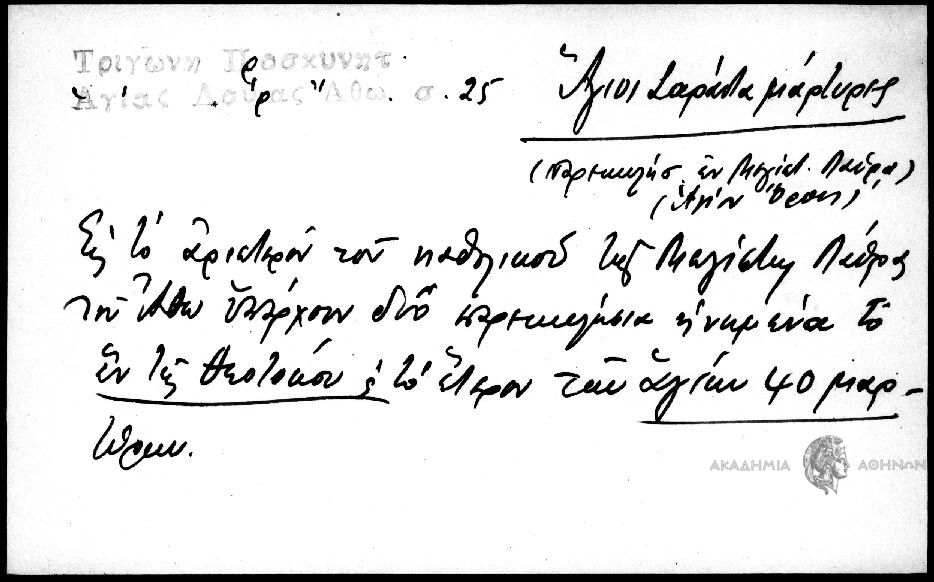 Τριγώνη Προσκυνητ.
Ἁγίας Λαύρας Ἄθω. σ. 25
Ἅγιοι Σαράντα μάρτυρες
(παρεκκλήσ. ἐν Μεγίστ. Λαύρᾳ)
(Ἁγίου Ὄρους)
Εἰς τὸ ἀριστερὸν τοῦ καθολικοῦ τῆς Μεγίστης Λαύρας
τοῦ Ἄθω ὑπάρχουν δύο παρεκκλήσια ἡνωμένα τὸ
ἓν τῆς Θεοτόκου ἑ τὸ ἕτερον τῶν ἁγίων 40 μαρ-
τύρων.
ΑΚΑΔΗΜΙΑ ΑΘΗΝΩΝ